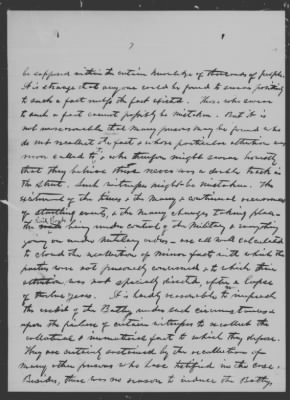 7
be supposed within the certain knowledge of thousands of people.
It is strange that any one could be found to swear positively
to such a fact unless the fact existed. Those who swear
to such a fact cannot possibly be mistaken. But it is
not unreasonable that many persons may be found who
do not recollect the fact or whose particular attention was
never called to it, who therefore might swear honestly
that they believe there never was a double track in
the Street. Such witnesses might be mistaken. The
excitement of the times & the many & continual occurrences
of startling events, & the many changes taking place
the being under control of the Military & everything
going on under Military orders are all well calculated
to cloud the recollection of minor facts with which the
parties were not personally concerned & to which their
attention was not specially directed, after a lapse
of twelve years. It is hardly reasonable to impeach
the credit of the Battys under such circumstances
upon the failure of certain witnesses to recollect the
collateral & immaterial fact to which they depose.
They are entirely sustained by the recollection of
many other persons who have testified in the case.
Besides, there was no reason to induce the Battys,